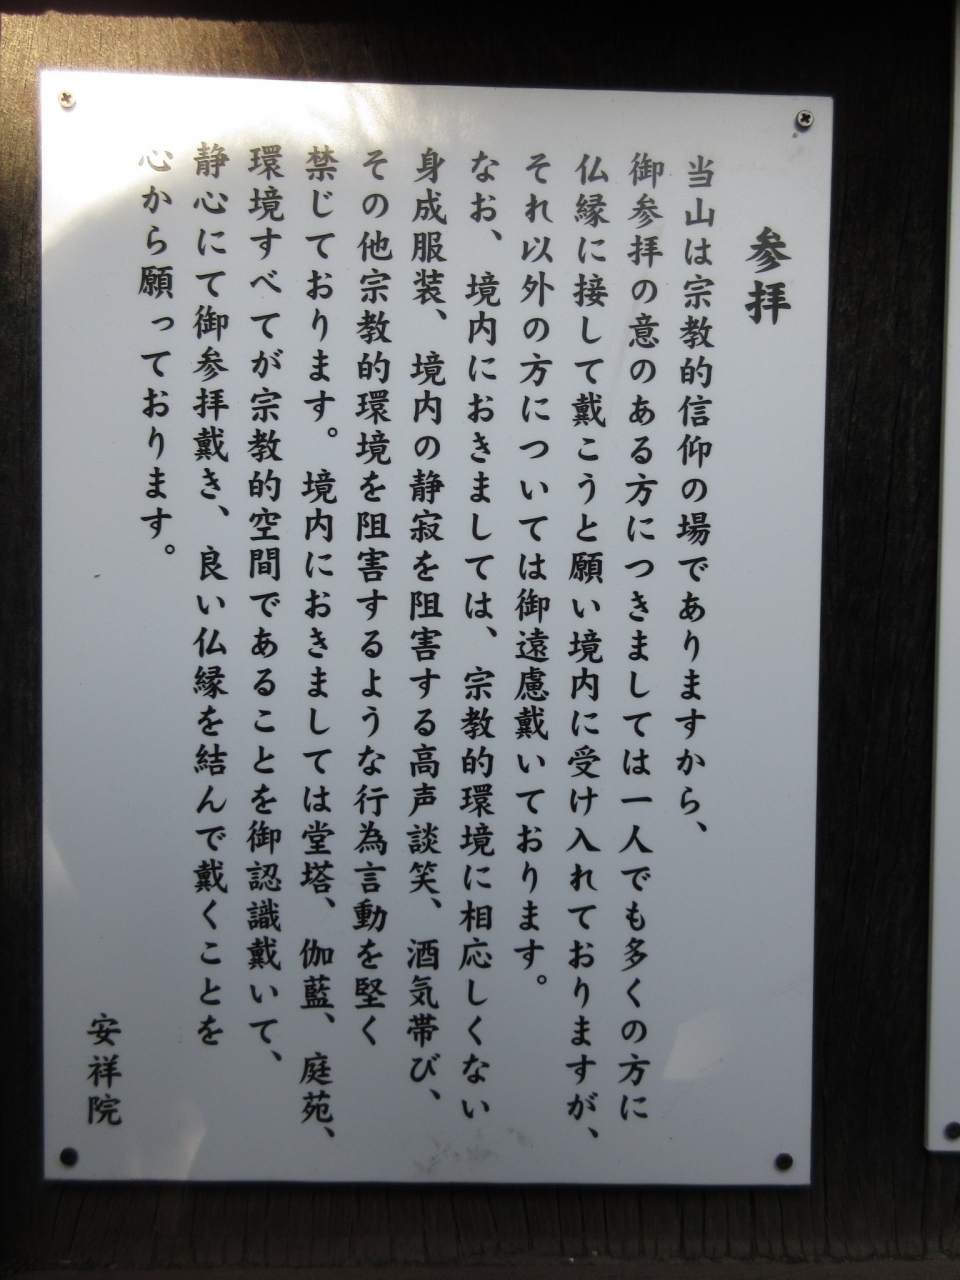 参拝
当山は宗教的信仰の場でありますから、
御参拝の意のある方につきましては一人でも多くの方に
仏縁に接して戴こうと願い境内に受け入れておりますが、
それ以外の方については御遠慮戴いております。
なお、境内におきましては、宗教的環境に相応しくない
身成服装、境内の静寂を阻害する高声談笑、酒気帯び、
その他宗教的環境を阻害するような行為言動を堅く
禁じております。境内におきましては堂塔、伽藍、庭苑、
環境すべてが宗教的空間であることを御認識戴いて、
静心にて御参拝戴き、良い仏縁を結んで戴くことを
心から願っております。
安祥院